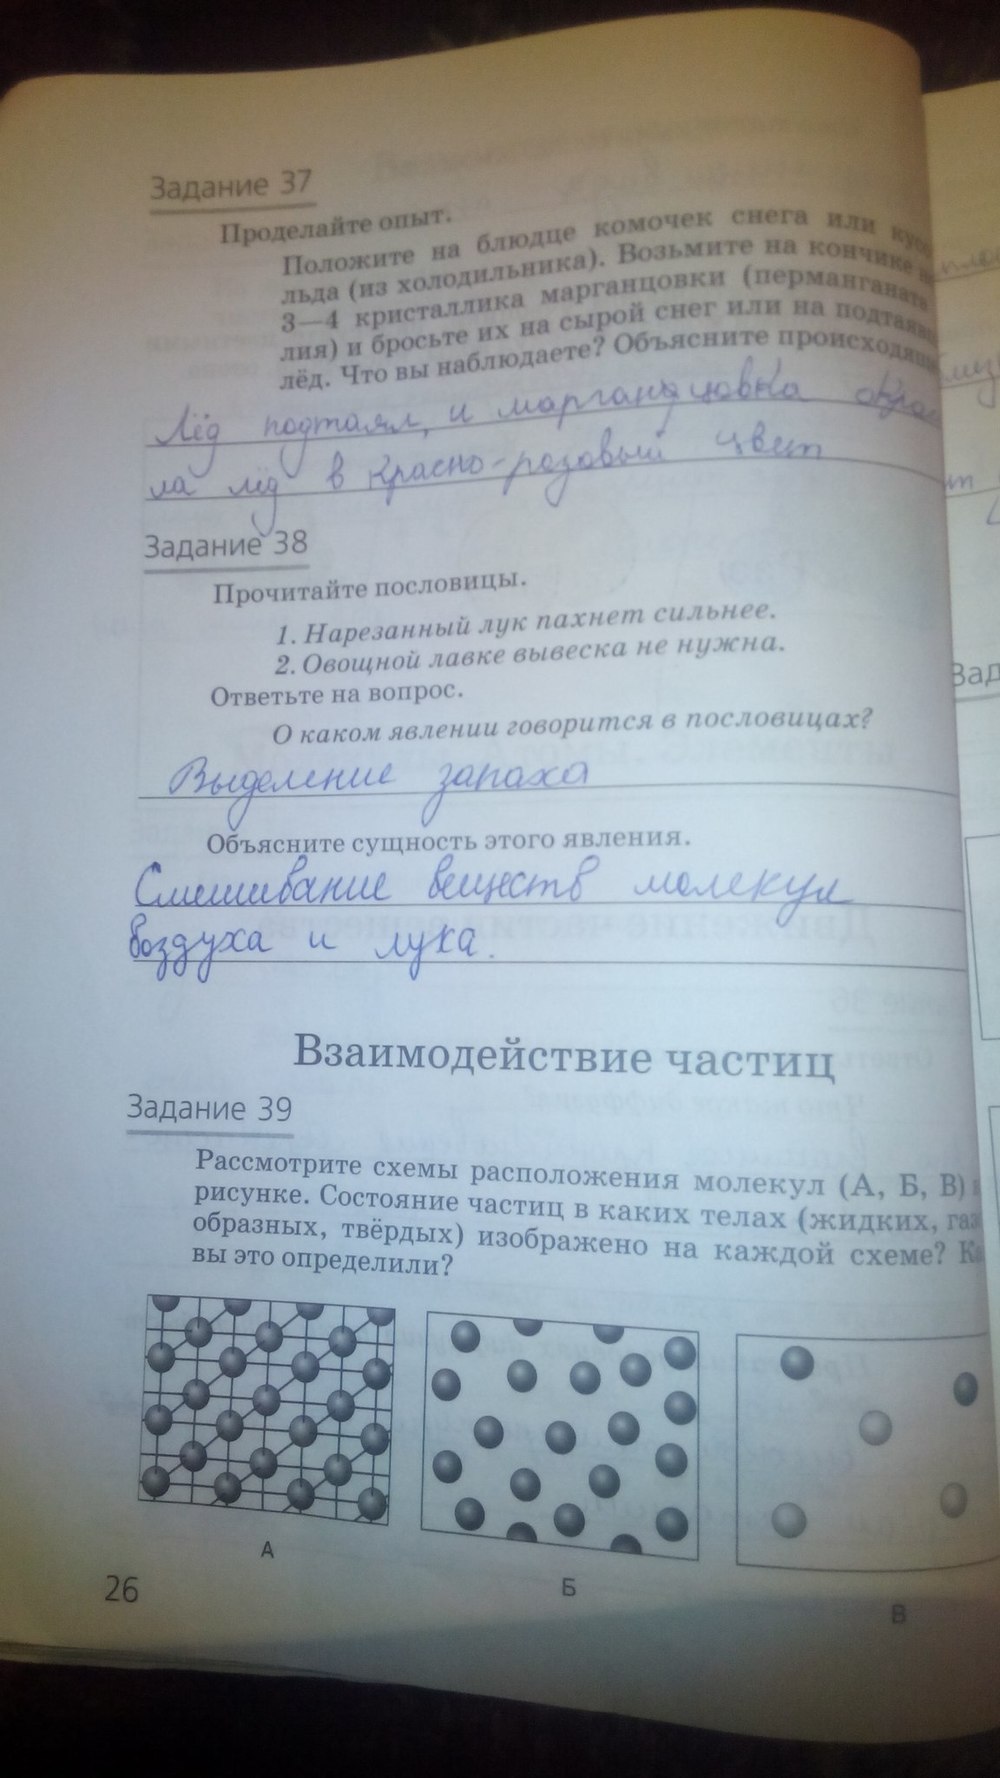 Задание 37
Проделайте опыт.
Положите на блюдце комочек снега или
льда (из холодильника). Возьмите на кончике
3—4 кристаллика марганцовки (перманганата
лия) и бросьте их на сырой снег или на
лёд. Что вы наблюдаете? Объясните
Лёд подтаял, и марганцовка
ла лёд в красно-розовый цвет
Задание 38
Прочитайте пословицы.
1. Нарезанный лук пахнет сильнее.
2. Овощной лавке вывеска не нужна.
Ответьте на вопрос.
О каком явлении говорится в пословицах?
Выделение запаха
Объясните сущность этого явления.
Смешивание веществ молекул
воздуха и лука.
Взаимодействие частиц
Задание 39
Рассмотрите схемы расположения молекул (А, Б, В)
рисунке. Состояние частиц в каких телах (жидких, газ
образных, твёрдых) изображено на каждой схеме?
вы это определили?
А
Б
В
26
Зад